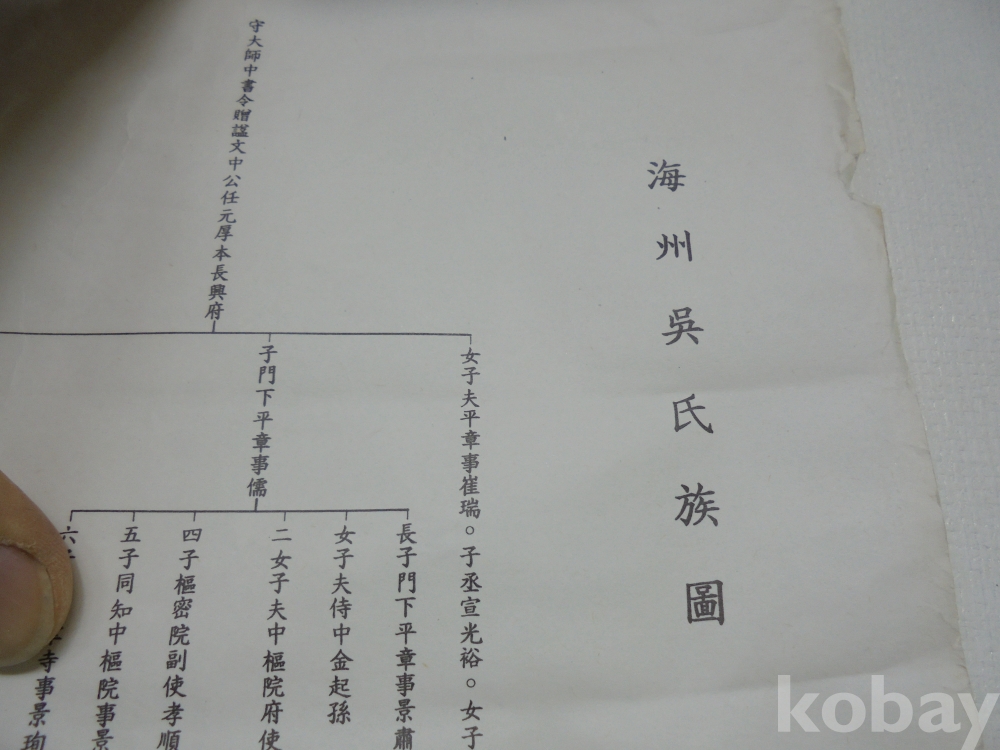 海州吳氏族圖
守大師中書令贈諡文中公任元厚本長興府
女子夫平章事崔瑞。子丞宣光裕。女子
子門下平章事儒
長子門下平章事景肅
女子夫侍中金起孫
二女子夫中樞院府使
四子樞密院副使孝順
五子同知中樞院事景
六子
寺事景珣
kobay